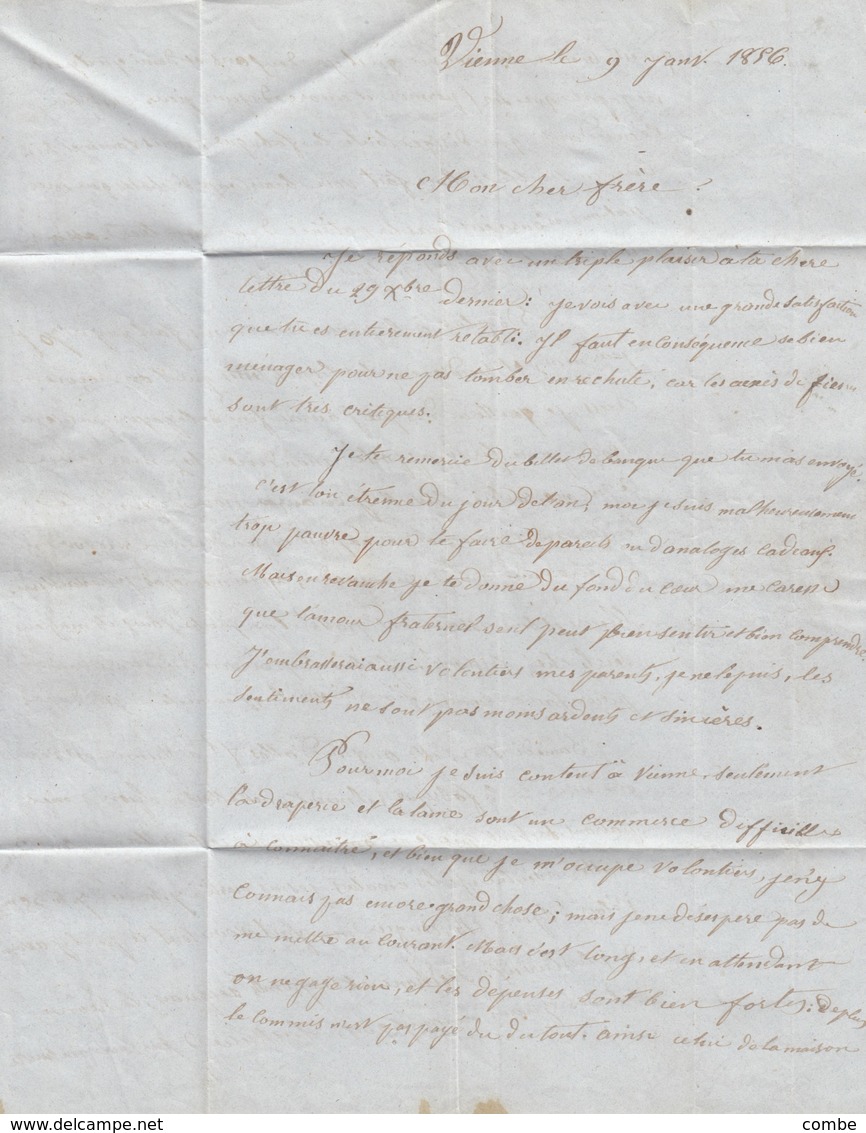 Vienne le 9 Janv. 1856.
Mon cher frère!
Je réponds avec un triple plaisir à ta chere
lettre du 29 Xbre dernier: je vois avec une grande satisfaction
que tu es entierement retabli. Il faut en conséquence se bien
ménager pour ne pas tomber en rechute, car les accés de fievre
sont tres critiques.
Je te remercie du billet de banque que tu m'as envoyé.
c'est ton étrenne du jour de l'an, moi je suis malheureusement
trop pauvre pour te faire de pareils ni d'analoges cadeaux.
Mais en revanche je te donne du fond du cœur une caresse
que l'amour fraternel seul peut bien sentir et bien comprendre.
J'embrasserai aussi volontiers mes parents, je ne le puis, les
sentiments ne sont pas moins ardents et sincères.
Pour moi je suis content à Vienne, seulement
la draperie et la laine sont un commerce difficille
à connaître, et bien que je m'occupe volontiers, je n'y
connais pas encore grand chose; mais je ne désespere pas de
me mettre au courant. Mais c'est long, et en attendant
on ne gagne rien, et les dépenses sont bien fortes: de plus
le commis n'est pas payé du du tout. ainsi celui de la maison
www.delcampe.net
combe